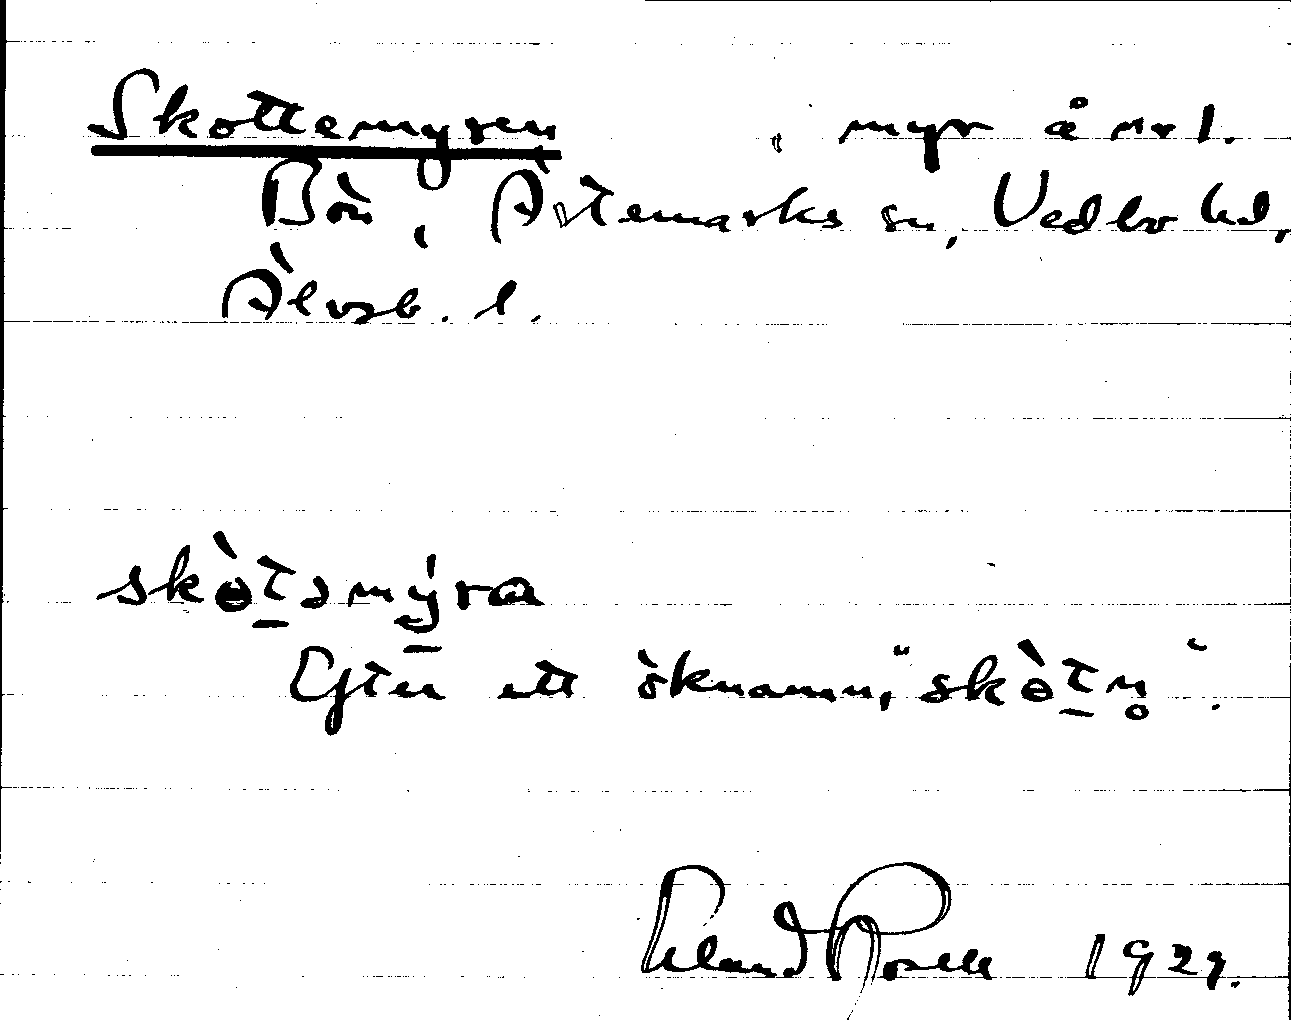 Skottemyren , myr å nr 1.
Bön, Ärtemarks sn, Vedbo hd,
Älvsb. l.
skɵ̀t̲əmý̲ra
Efter ett öknamn, "skɵ̀t̲n̥".
Erland Rosell 1929.